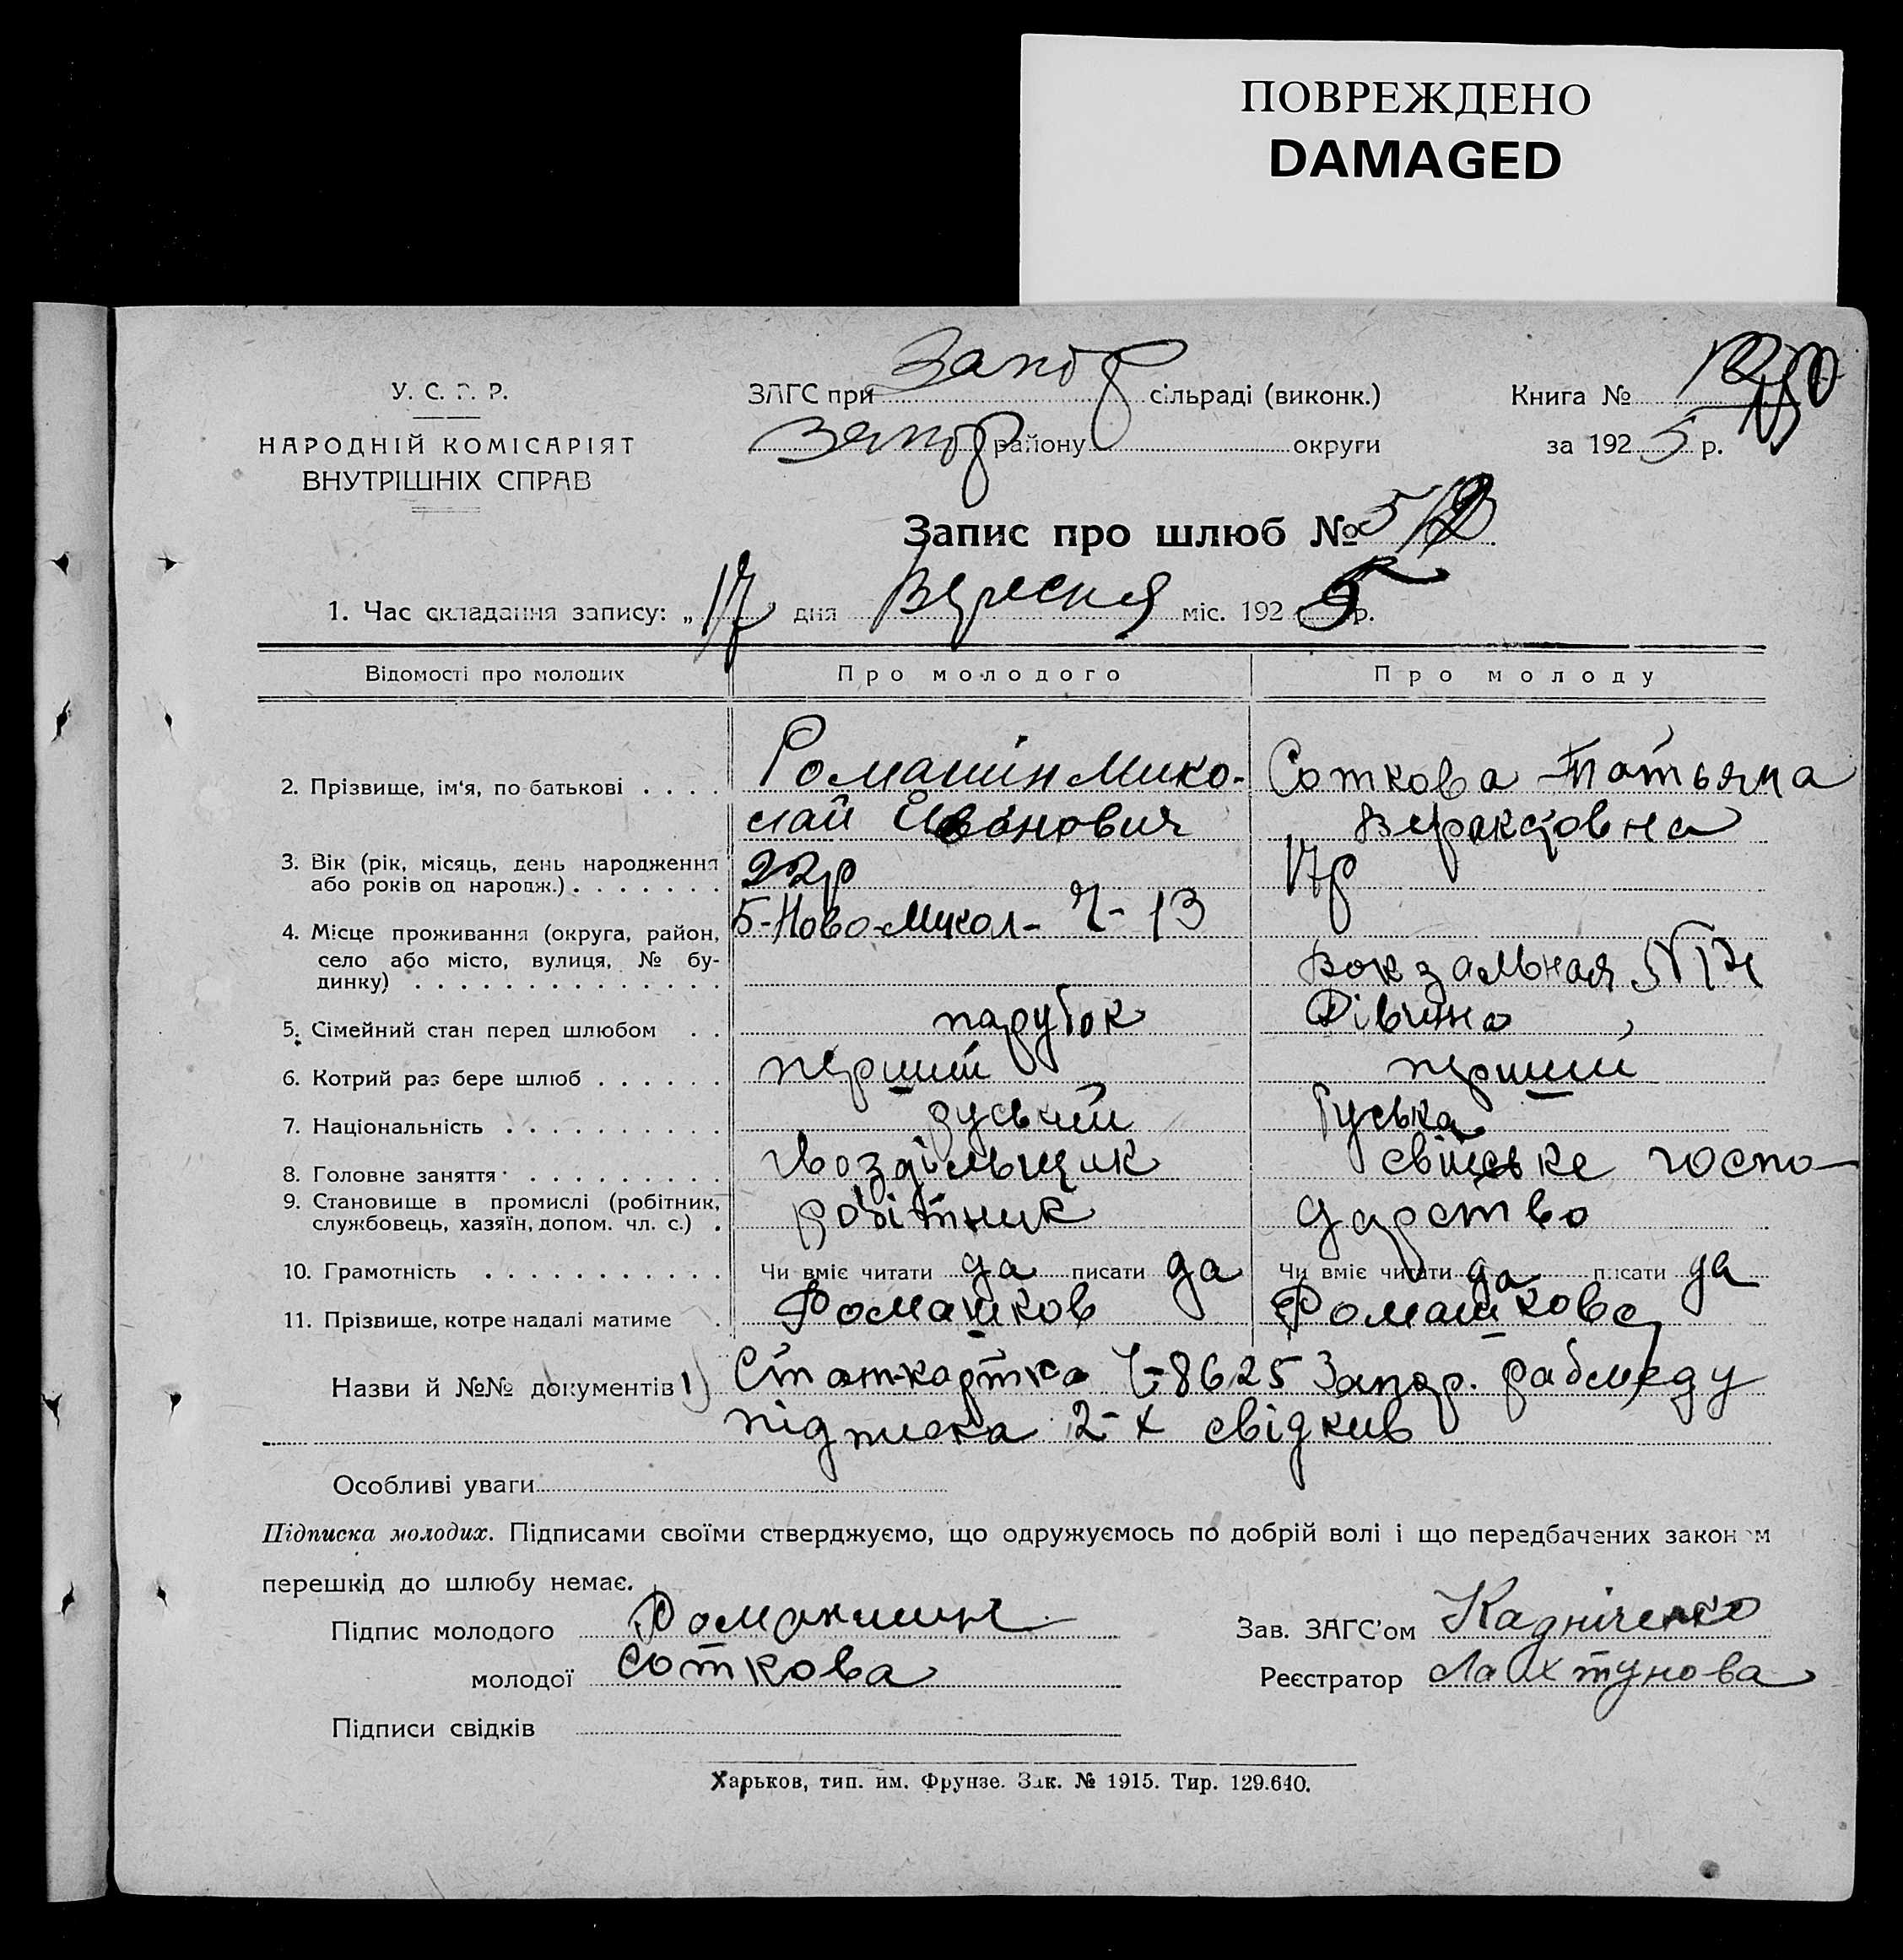 ПОВРЕЖДЕНО
DAMAGED
У. С. Р. Р.
НАРОДНІЙ КОМІСАРІЯТ
ВНУТРІШНІХ СПРАВ
ЗАГС при Запор сільраді (виконк.)
Запор району округи
Книга №
за 1925 р.
Запис про шлюб №
1. Час складання запису: „17" дня Вересня міс. 1925 р.
Відомості про молодих Про молодого Про молоду
2. Прізвище, ім'я, по батькові . . . . Ромашін Мико- Соткова Татьяна
лай Іванович
3. Вік (рік, місяць, день народження 22р 17р
або років од народж.) . . . . . . .
4. Місце проживання (округа, район, Б-Ново-Микол- Ч- 13
село або місто, вулиця, № бу- Вокзальная
динку) . . . . . . . . . . . . . .
5. Сімейний стан перед шлюбом . . парубок Дівчина
6. Котрий раз бере шлюб . . . . . . перший перший
7. Національність . . . . . . . . . . руський Руська
8. Головне заняття . . . . . . . . . гвоздільщик свійське госпо-
9. Становище в промислі (робітник, робітник дарство
службовець, хазяїн, допом. чл. с.) .
10. Грамотність . . . . . . . . . . . Чи вміє читати да писати да Чи вміє читати да писати да
11. Прізвище, котре надалі матиме . Ромашков Ромашкова
Назви й №№ документів 1) Статкартка Ч-8625 Запор.
підписка 2-х свідків
Особливі уваги
Підписка молодих. Підписами своїми стверджуємо, що одружуємось по добрій волі і що передбачених законом
перешкід до шлюбу немає.
Підпис молодого
молодої Соткова
Підписи свідків
Зав. ЗАГС'ом
Реєстратор Лахтунова
Харьков, тип. им. Фрунзе. Зак. № 1915. Тир. 129.640.